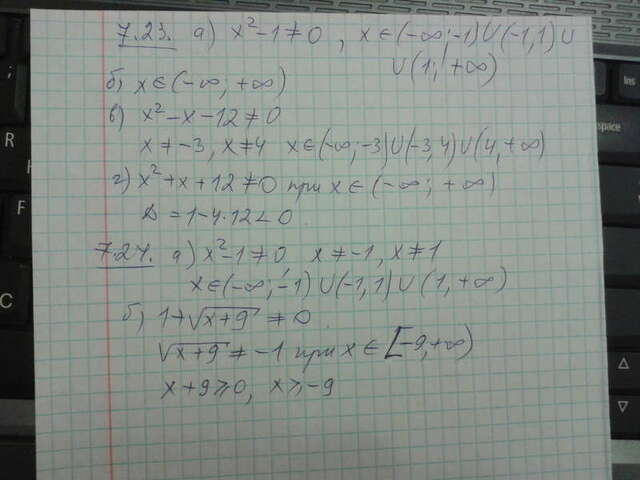 7.23. а) x²-1≠0, x∈(-∞;-1)∪(-1,1)∪
∪(1; +∞)
б) x∈(-∞; +∞)
в) x²-x-12≠0
x≠-3, x≠4 x∈(-∞;-3)∪(-3,4)∪(4,+∞)
г) x²+x+12≠0 при x∈(-∞; +∞)
D=1-4·12<0
7.24. а) x²-1≠0 x≠-1, x≠1
x∈(-∞;-1)∪(-1,1)∪(1,+∞)
б) 1+√x+9≠0
√x+9≠-1 при x∈[-9,+∞)
x+9≥0, x≥-9
R
F
space